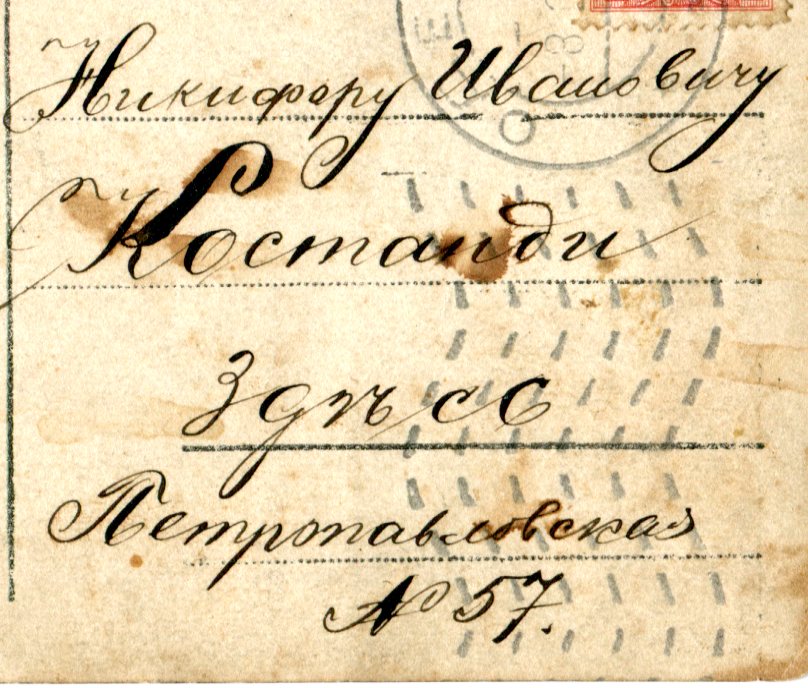 Никифору Ивановичу
Костанди
Здѣсь
Петропавловская
№ 57.